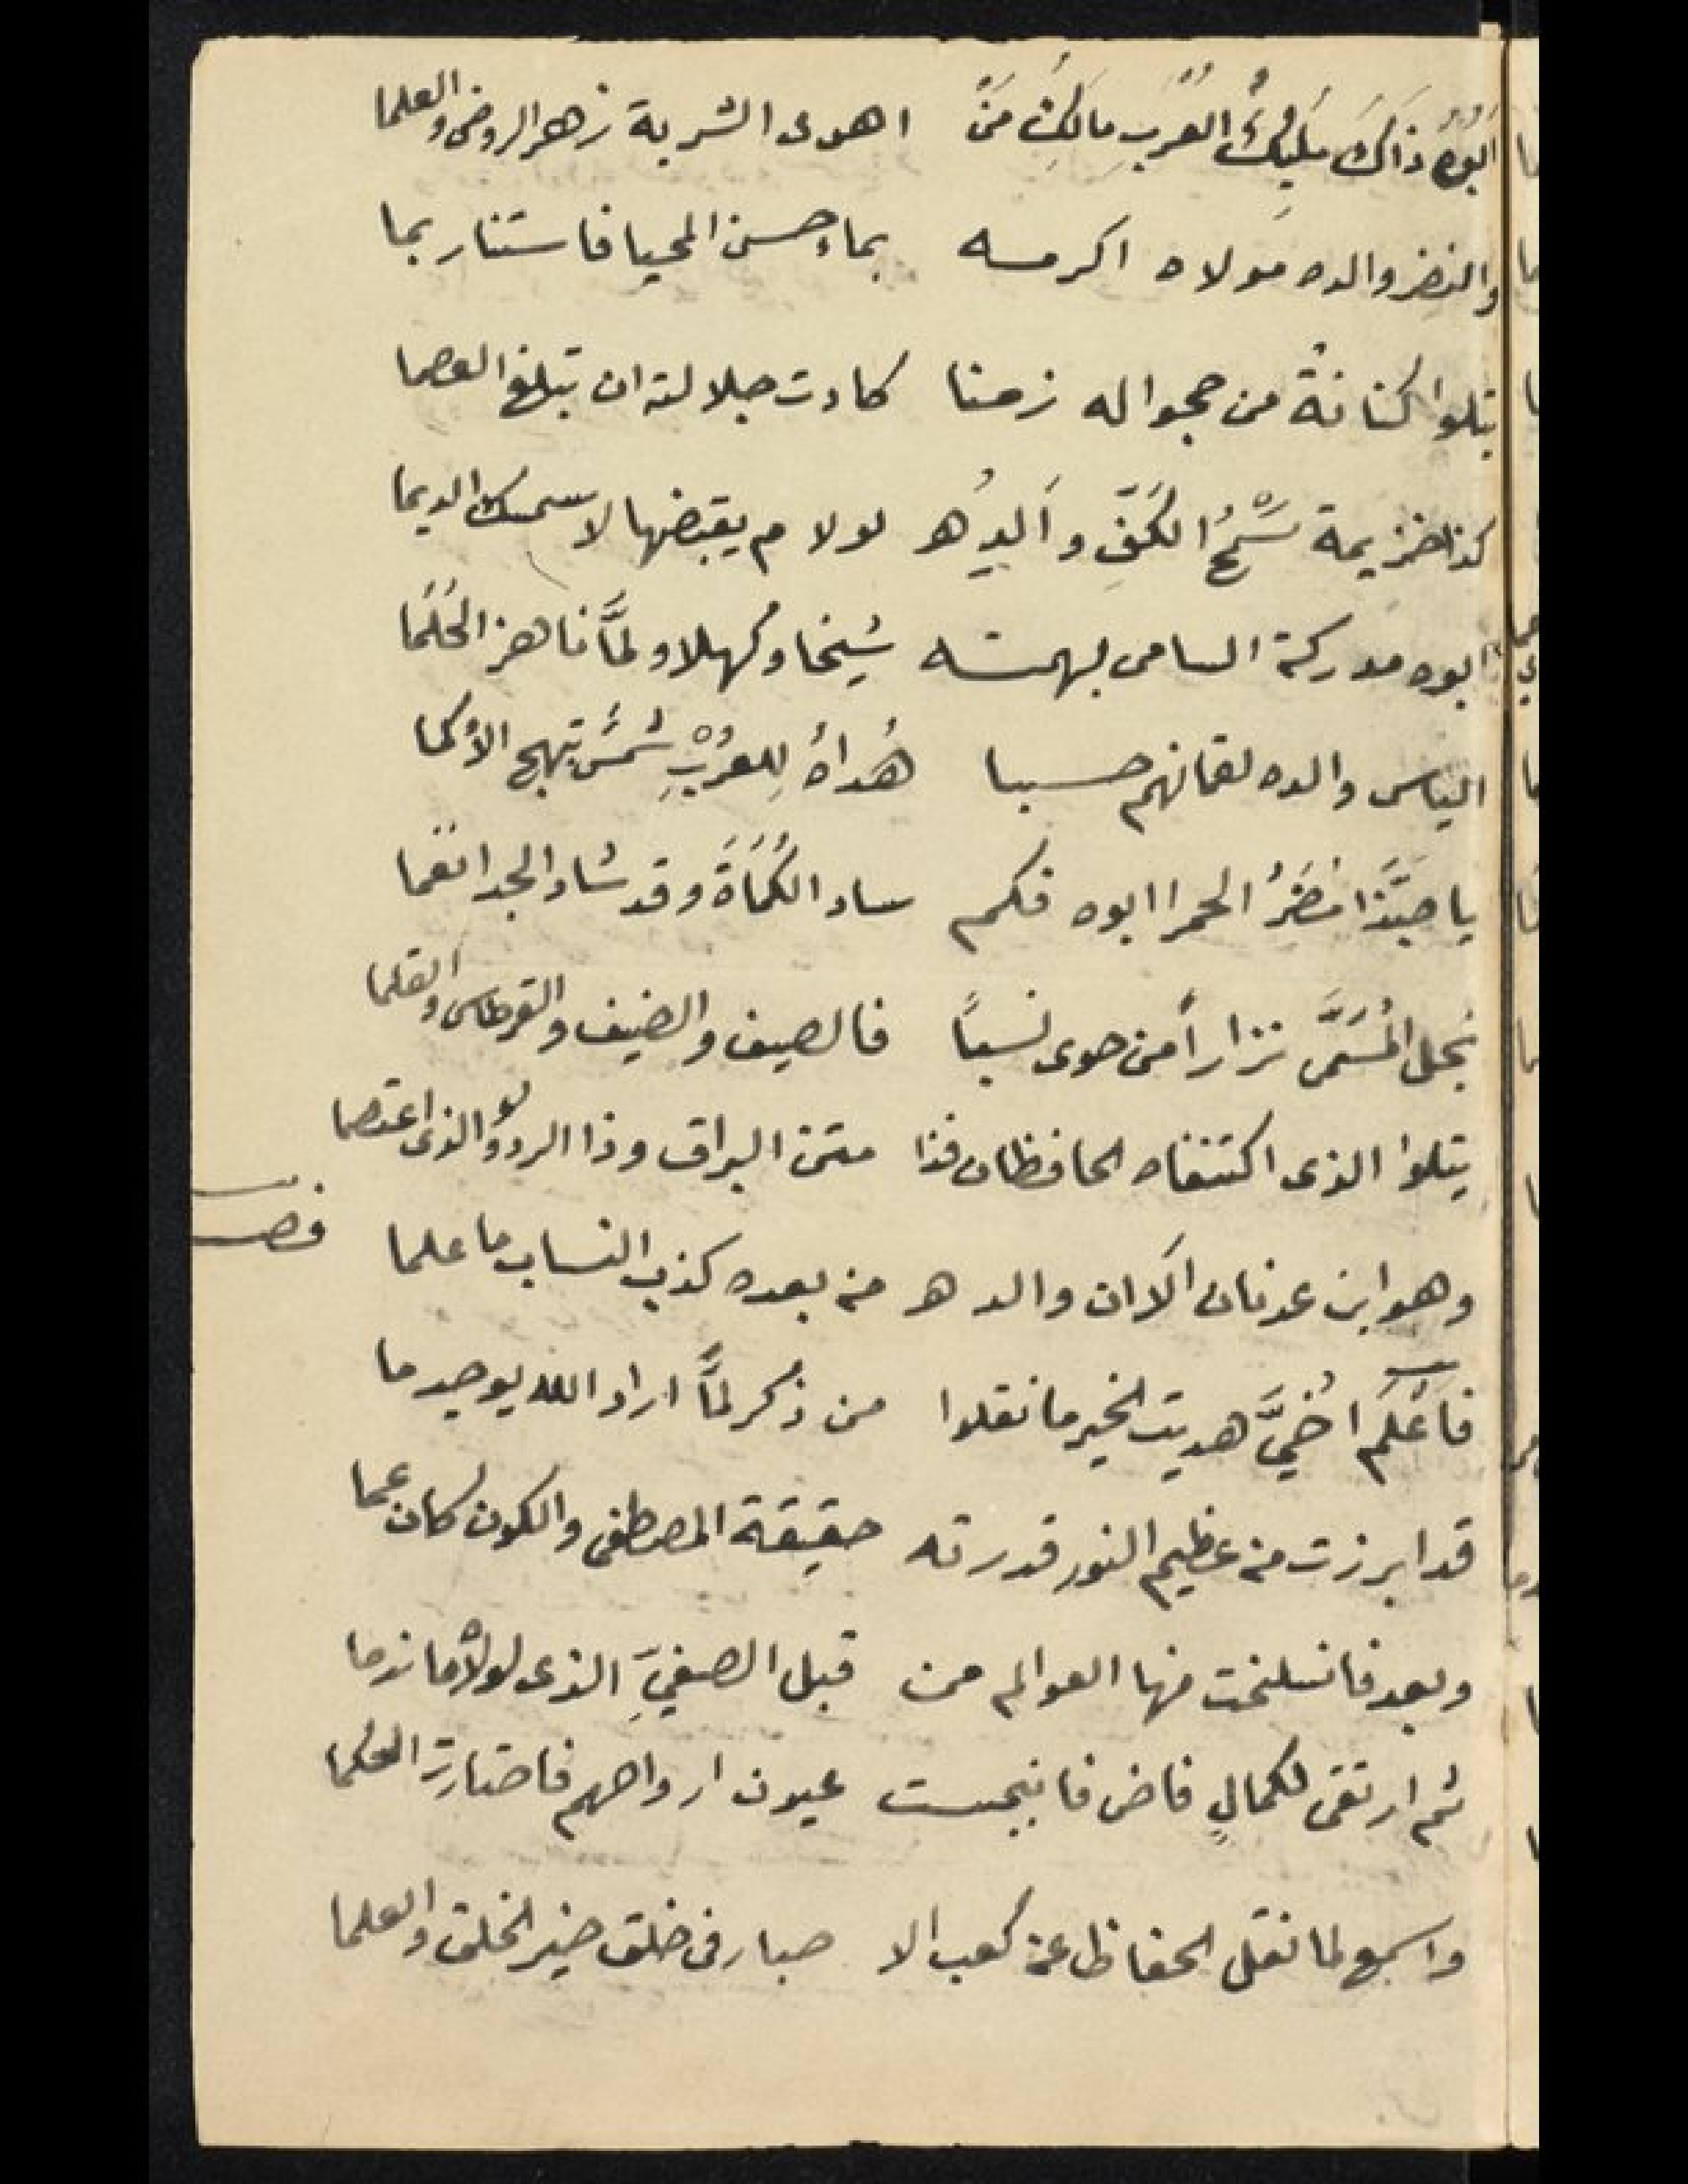 ابُوهُ ذَاكَ مَلِيكُ العُرَبِ مَالِكُ مَنْ اهدى الشربة زهر الروض والعلما
والنضر والده مولاه اكرمه بماء حسن المحيا فاستنار بما
يتلوا كنانةُ من حجوا له زمنا كادت جلالته ان تبلغ العصما
كذا خزيمة سَحُّ الكَفِّ وَالِدُه لولا م يقبضها لاستمسك الديما
ابوه مدركة السامى بهمته شيخا وكهلا ولمَّا ناهز الحُلُمَا
الياس والده لقمانهم حسبا هُدَاهُ لِلعُرْبِ شمسٌ تبهج الأكما
يا حبَّذا مُضَرُ الحمرا ابوه فكم ساد الكُمَاةَ وقد شاد المجد انعُما
نجل المُسَمَّى نزاراً من حوى نسباً فالصيف والضيف والقرطاس والقلما
يتلوا الذى اكتنفاه الحافظان فذا متن البراق وذا الردو الذى اعتصما
وهو ابن عدنان الاان والده من بعده كذب النساب ما علما
فصـ
فَاَعْلَم اخيَّ هديت الخير ما نقلوا من ذكر لمَّا اراد الله يوجد ما
قد ابرزت من عظيم النور قدرته حقيقة المصطفى والكون كان عما
وبعد فانسلخت منها العوالم من قبل الصفيِّ الذى لولاه ما ندما
ثم ارتقى لكمالٍ فاض فانبجست عيون ارواحهم فاختارت الحكما
واسمع لما نقل الحفاظ عن كعب الا حبار فى خلق خير الخلق والعلما